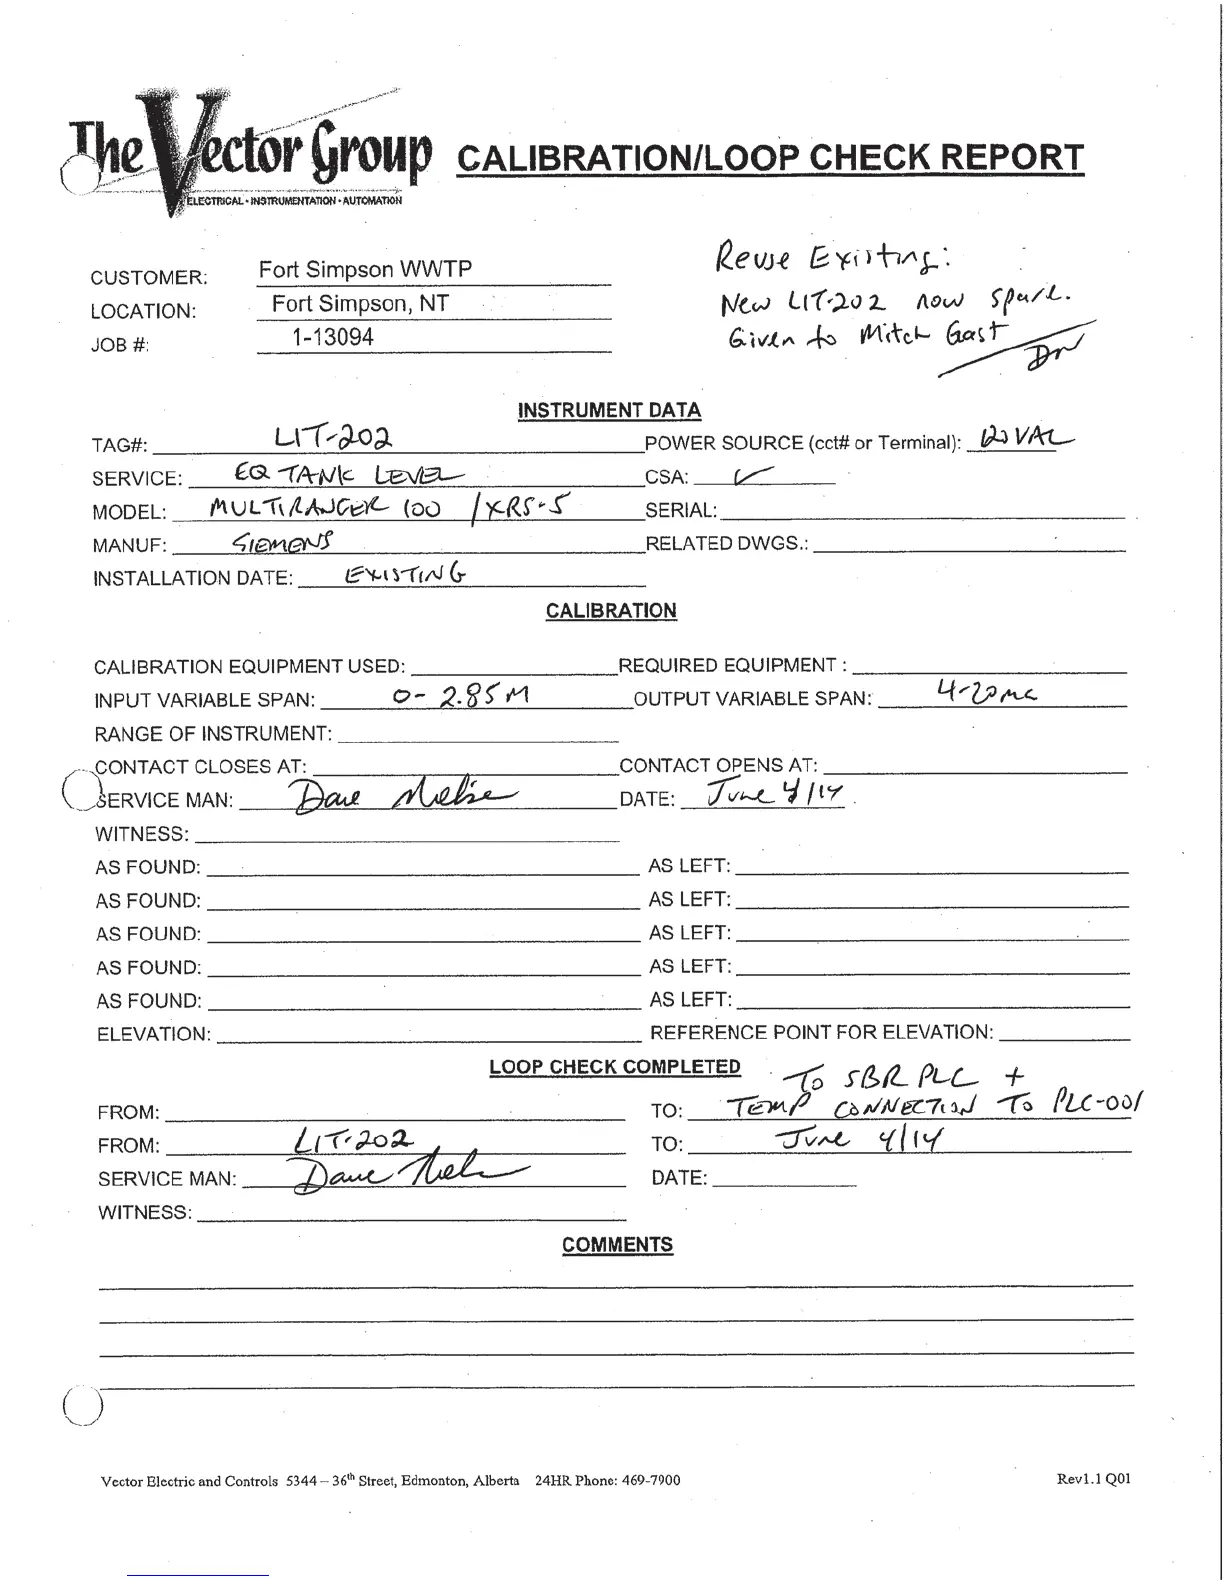 The Vector Group
ELECTRICAL • INSTRUMENTATION • AUTOMATION
CALIBRATION/LOOP CHECK REPORT
CUSTOMER: Fort Simpson WWTP
LOCATION: Fort Simpson, NT
JOB #: 1-13094
Reuse Existing:
New LIT-202 now spare.
Given to Mitch Gast
DN
INSTRUMENT DATA
TAG#: LIT-202 POWER SOURCE (cct# or Terminal): 120 VAC
SERVICE: EQ TANK LEVEL CSA: ✓
MODEL: MULTIRANGER 100 / XRS-5 SERIAL:
MANUF: SIEMENS RELATED DWGS.:
INSTALLATION DATE: EXISTING
CALIBRATION
CALIBRATION EQUIPMENT USED: REQUIRED EQUIPMENT :
INPUT VARIABLE SPAN: 0 - 2.85 M OUTPUT VARIABLE SPAN: 4-20ma
RANGE OF INSTRUMENT:
CONTACT CLOSES AT: CONTACT OPENS AT:
SERVICE MAN: Dave DATE: June 4/14
WITNESS:
AS FOUND: AS LEFT:
AS FOUND: AS LEFT:
AS FOUND: AS LEFT:
AS FOUND: AS LEFT:
AS FOUND: AS LEFT:
ELEVATION: REFERENCE POINT FOR ELEVATION:
LOOP CHECK COMPLETED
To SBR PLC +
FROM: TO: TEMP CONNECTION To PLC-001
FROM: LIT-202 TO: June 4/14
SERVICE MAN: Dave DATE:
WITNESS:
COMMENTS
Vector Electric and Controls 5344 – 36th Street, Edmonton, Alberta 24HR Phone: 469-7900 Rev1.1 Q01